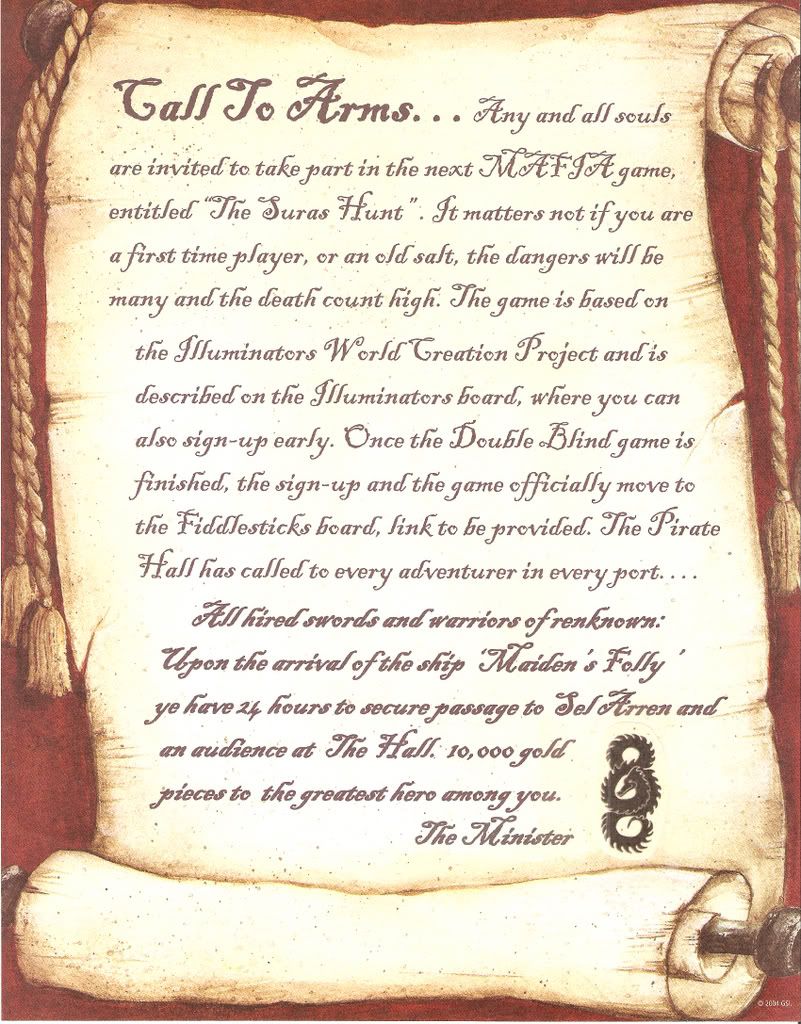 Call To Arms. . . Any and all souls
are invited to take part in the next MAFIA game,
entitled "The Suras Hunt". It matters not if you are
a first time player, or an old salt, the dangers will be
many and the death count high. The game is based on
the Illuminators World Creation Project and is
described on the Illuminators board, where you can
also sign-up early. Once the Double Blind game is
finished, the sign-up and the game officially move to
the Fiddlesticks board, link to be provided. The Pirate
Hall has called to every adventurer in every port. . . .
All hired swords and warriors of renknown:
Upon the arrival of the ship 'Maiden's Folly'
ye have 24 hours to secure passage to Sel Arren and
an audience at The Hall. 10,000 gold
pieces to the greatest hero among you.
The Minister
© 2001 GSI.